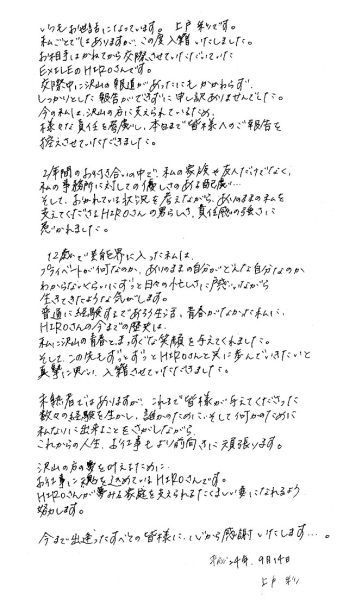 いつもお世話になっています。上戸彩です。
私ごとではありますが、この度入籍いたしました。
お相手はかねてから交際させていただいていた
EXILEのHIROさんです。
交際中に沢山の報道があったにもかかわらず、
しっかりとした報告ができずに申し訳ありませんでした。
今の私は、沢山の方に支えられているため、
様々な責任を考慮し、本日まで皆様へのご報告を
控えさせていただきました。
2年間のお付き合いの中で、私の家族や友人だけでなく、
私の事務所に対しての優しさのある気配り…
そして、おかれている状況を考えながら、ありのままの私を
支えてくださるHIROさんの男らしさ、責任感の強さに
惹かれました。
12歳で芸能界に入った私は、
プライベートが何なのか、ありのままの自分がどんな自分なのか
わからないくらいにずっと日々の忙しさに戸惑いながら
生きてきたような気がします。
普通に経験するであろう生活、青春がなかった私に、
HIROさんの今までの歴史は、
私に沢山の青春と、まっすぐな笑顔を与えてくれました。
そして、この先もずっとずっとHIROさんと共に歩んでいきたいと
真摯に思い、入籍させていただきました。
未熟者ではありますが、これまで皆様が与えてくださった
数々の経験を生かし、誰かのために、そして何かのために
私なりに出来ることをさがしながら、
これからの人生、お仕事もより前向きに頑張ります。
沢山の方の夢を叶えるために
お仕事に魂をこめているHIROさんです。
HIROさんが夢みる家庭を支えられるたくましい妻になれるよう
努力します。
今まで出逢ったすべての皆様に、心から感謝いたします…。
平成24年 9月14日
上戸 彩